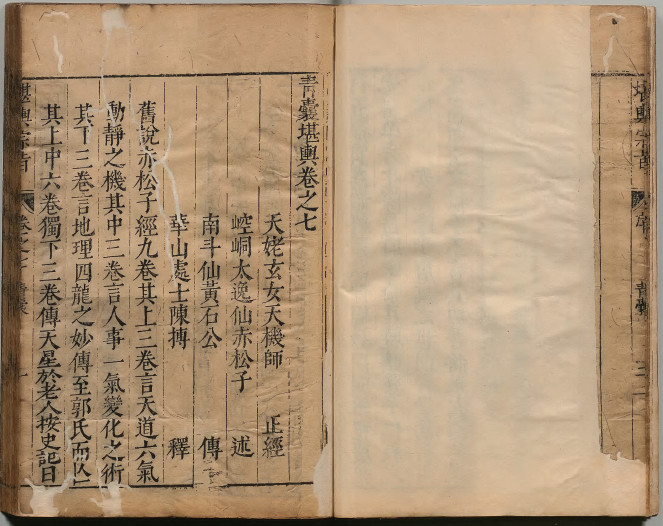 堪輿宗旨
序
青囊
三
青囊堪輿卷之七
天姥玄女天機師 正經
崆峒太逸仙赤松子 述
南斗仙黃石公 傳
華山處士陳摶 釋
舊說赤松子經九卷其上三卷言天道六氣
動靜之機其中三卷言人事一氣變化之術
其下三卷言地理四龍之妙傳至郭氏而亾
其上中六卷獨下三卷傳天星於老人按史記日
堪輿宗旨
卷之七
一